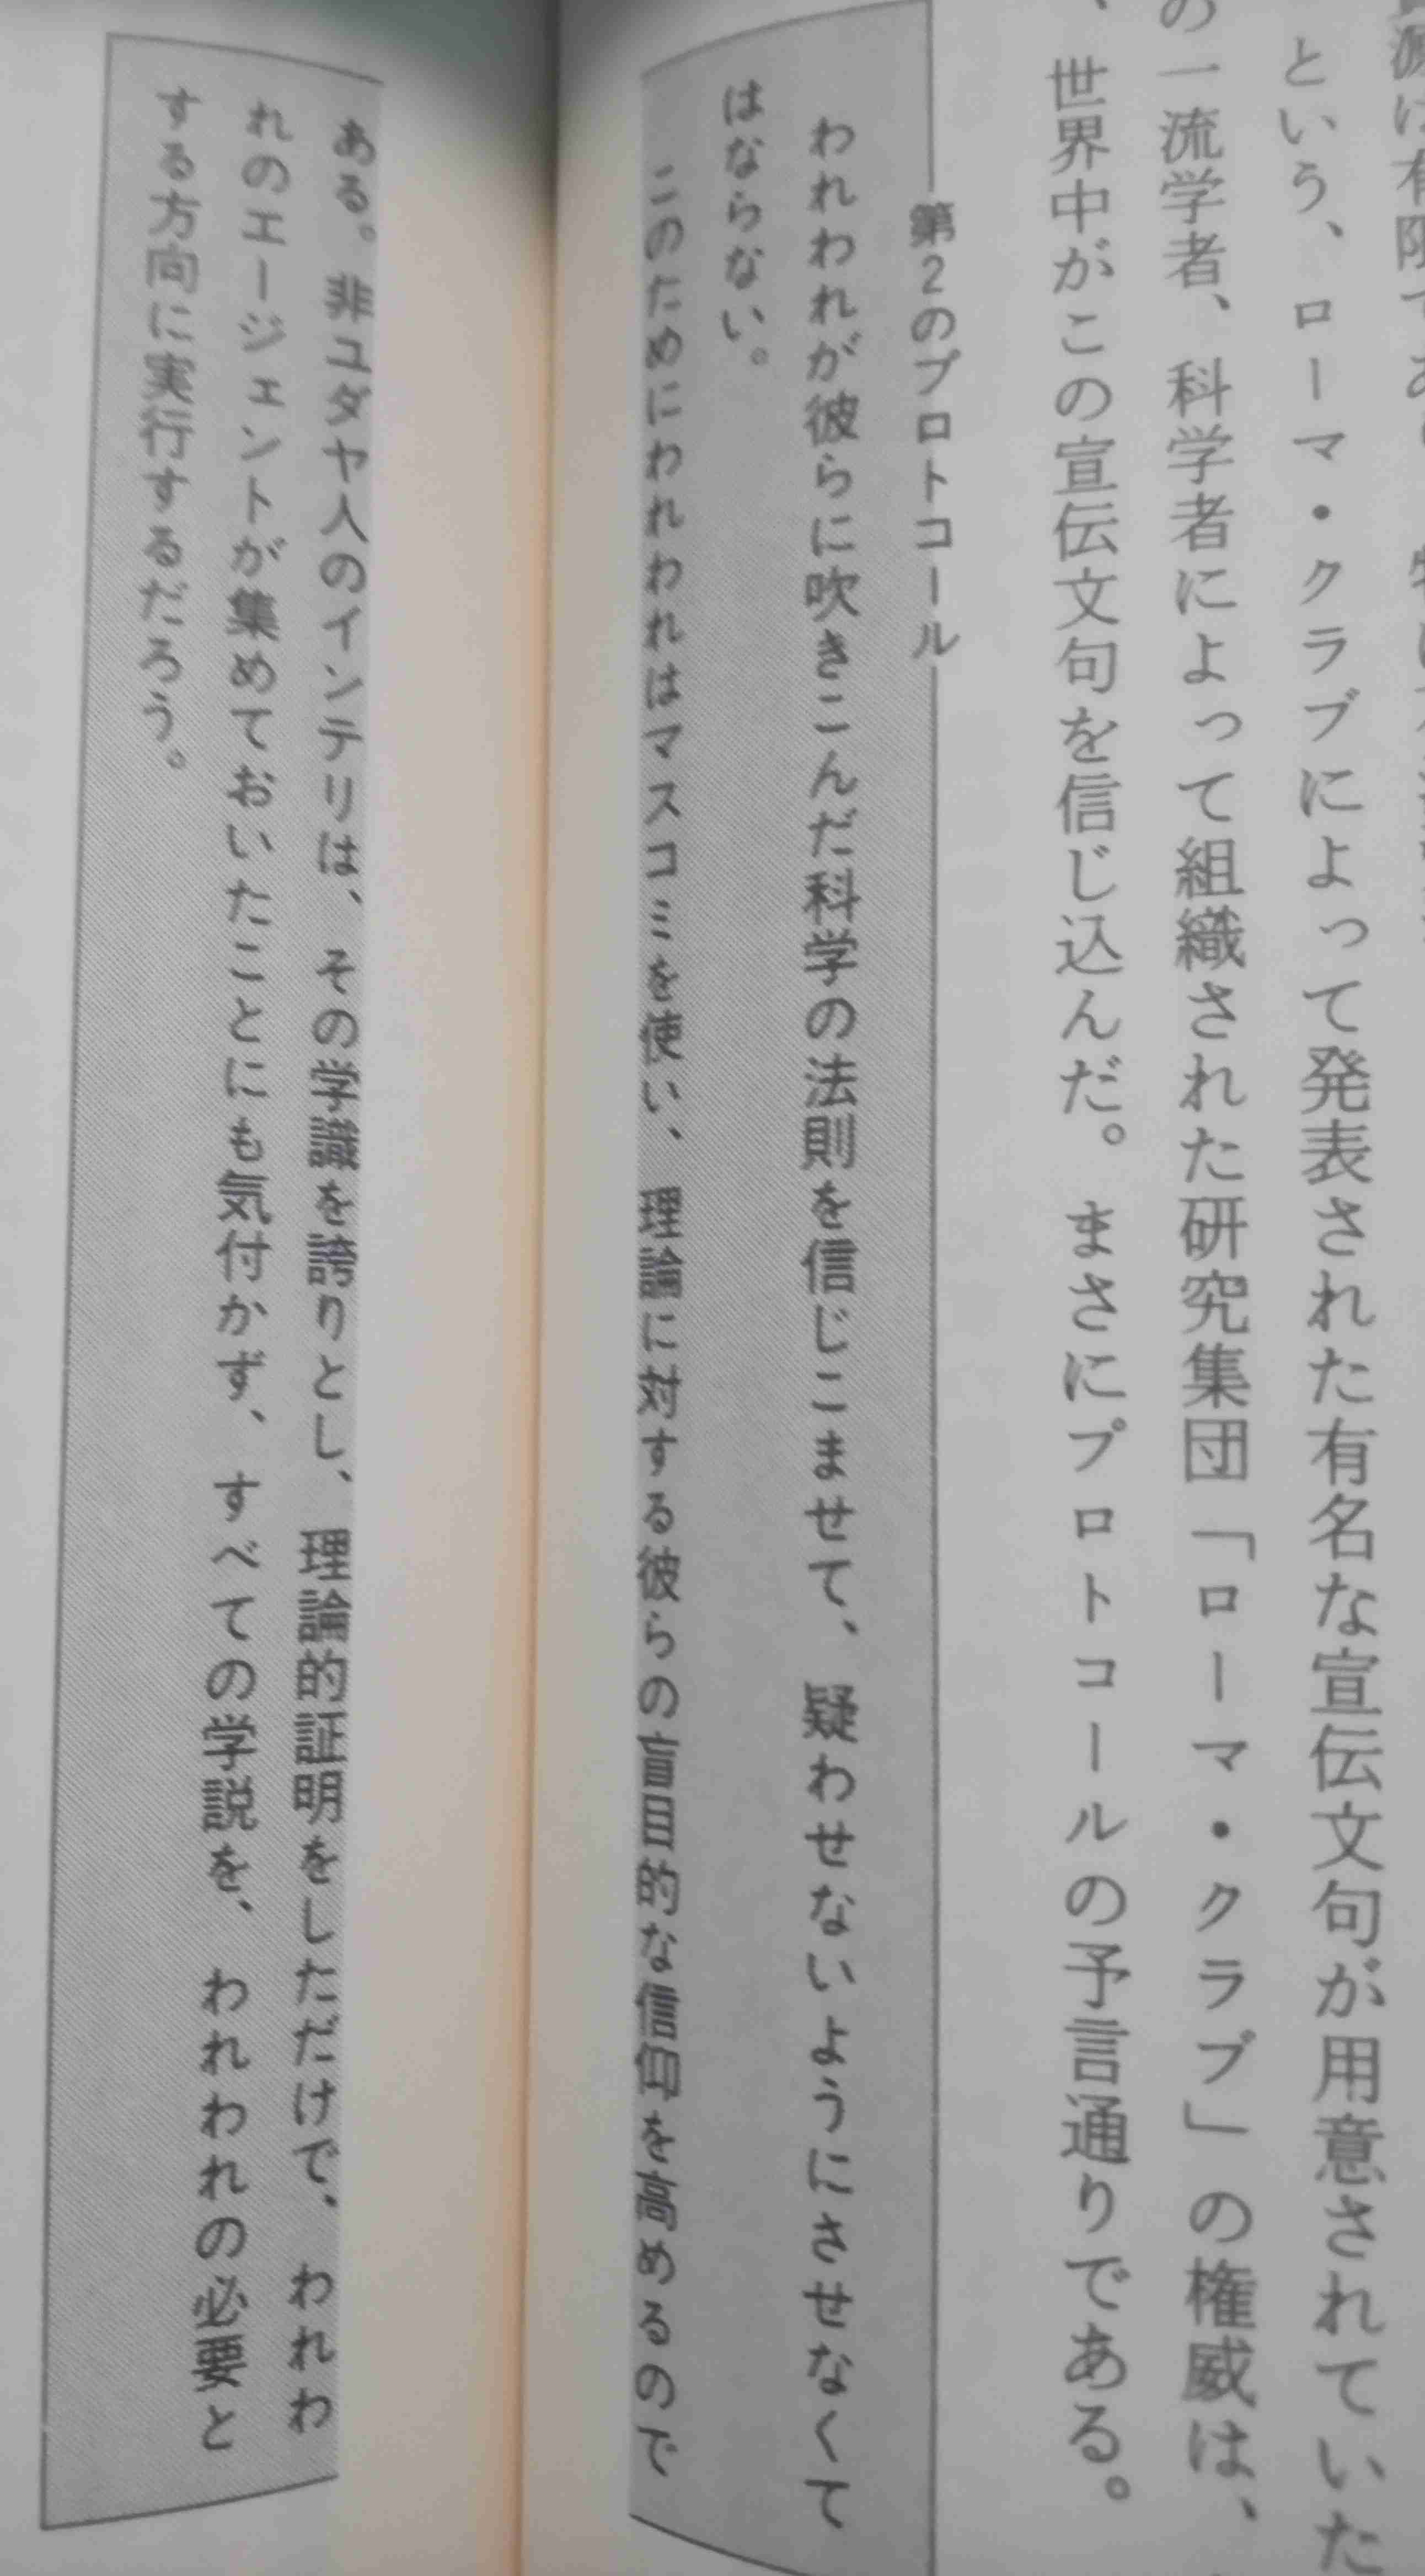 という、ローマ・クラブによって発表された有名な宣伝文句が用意されていた
の一流学者、科学者によって組織された研究集団「ローマ・クラブ」の権威は、
、世界中がこの宣伝文句を信じ込んだ。まさにプロトコールの予言通りである。
第2のプロトコール
われわれが彼らに吹きこんだ科学の法則を信じこませて、疑わせないようにさせなくて
はならない。
このためにわれわれはマスコミを使い、理論に対する彼らの盲目的な信仰を高めるので
ある。非ユダヤ人のインテリは、その学識を誇りとし、理論的証明をしただけで、われわ
れのエージェントが集めておいたことにも気付かず、すべての学説を、われわれの必要と
する方向に実行するだろう。